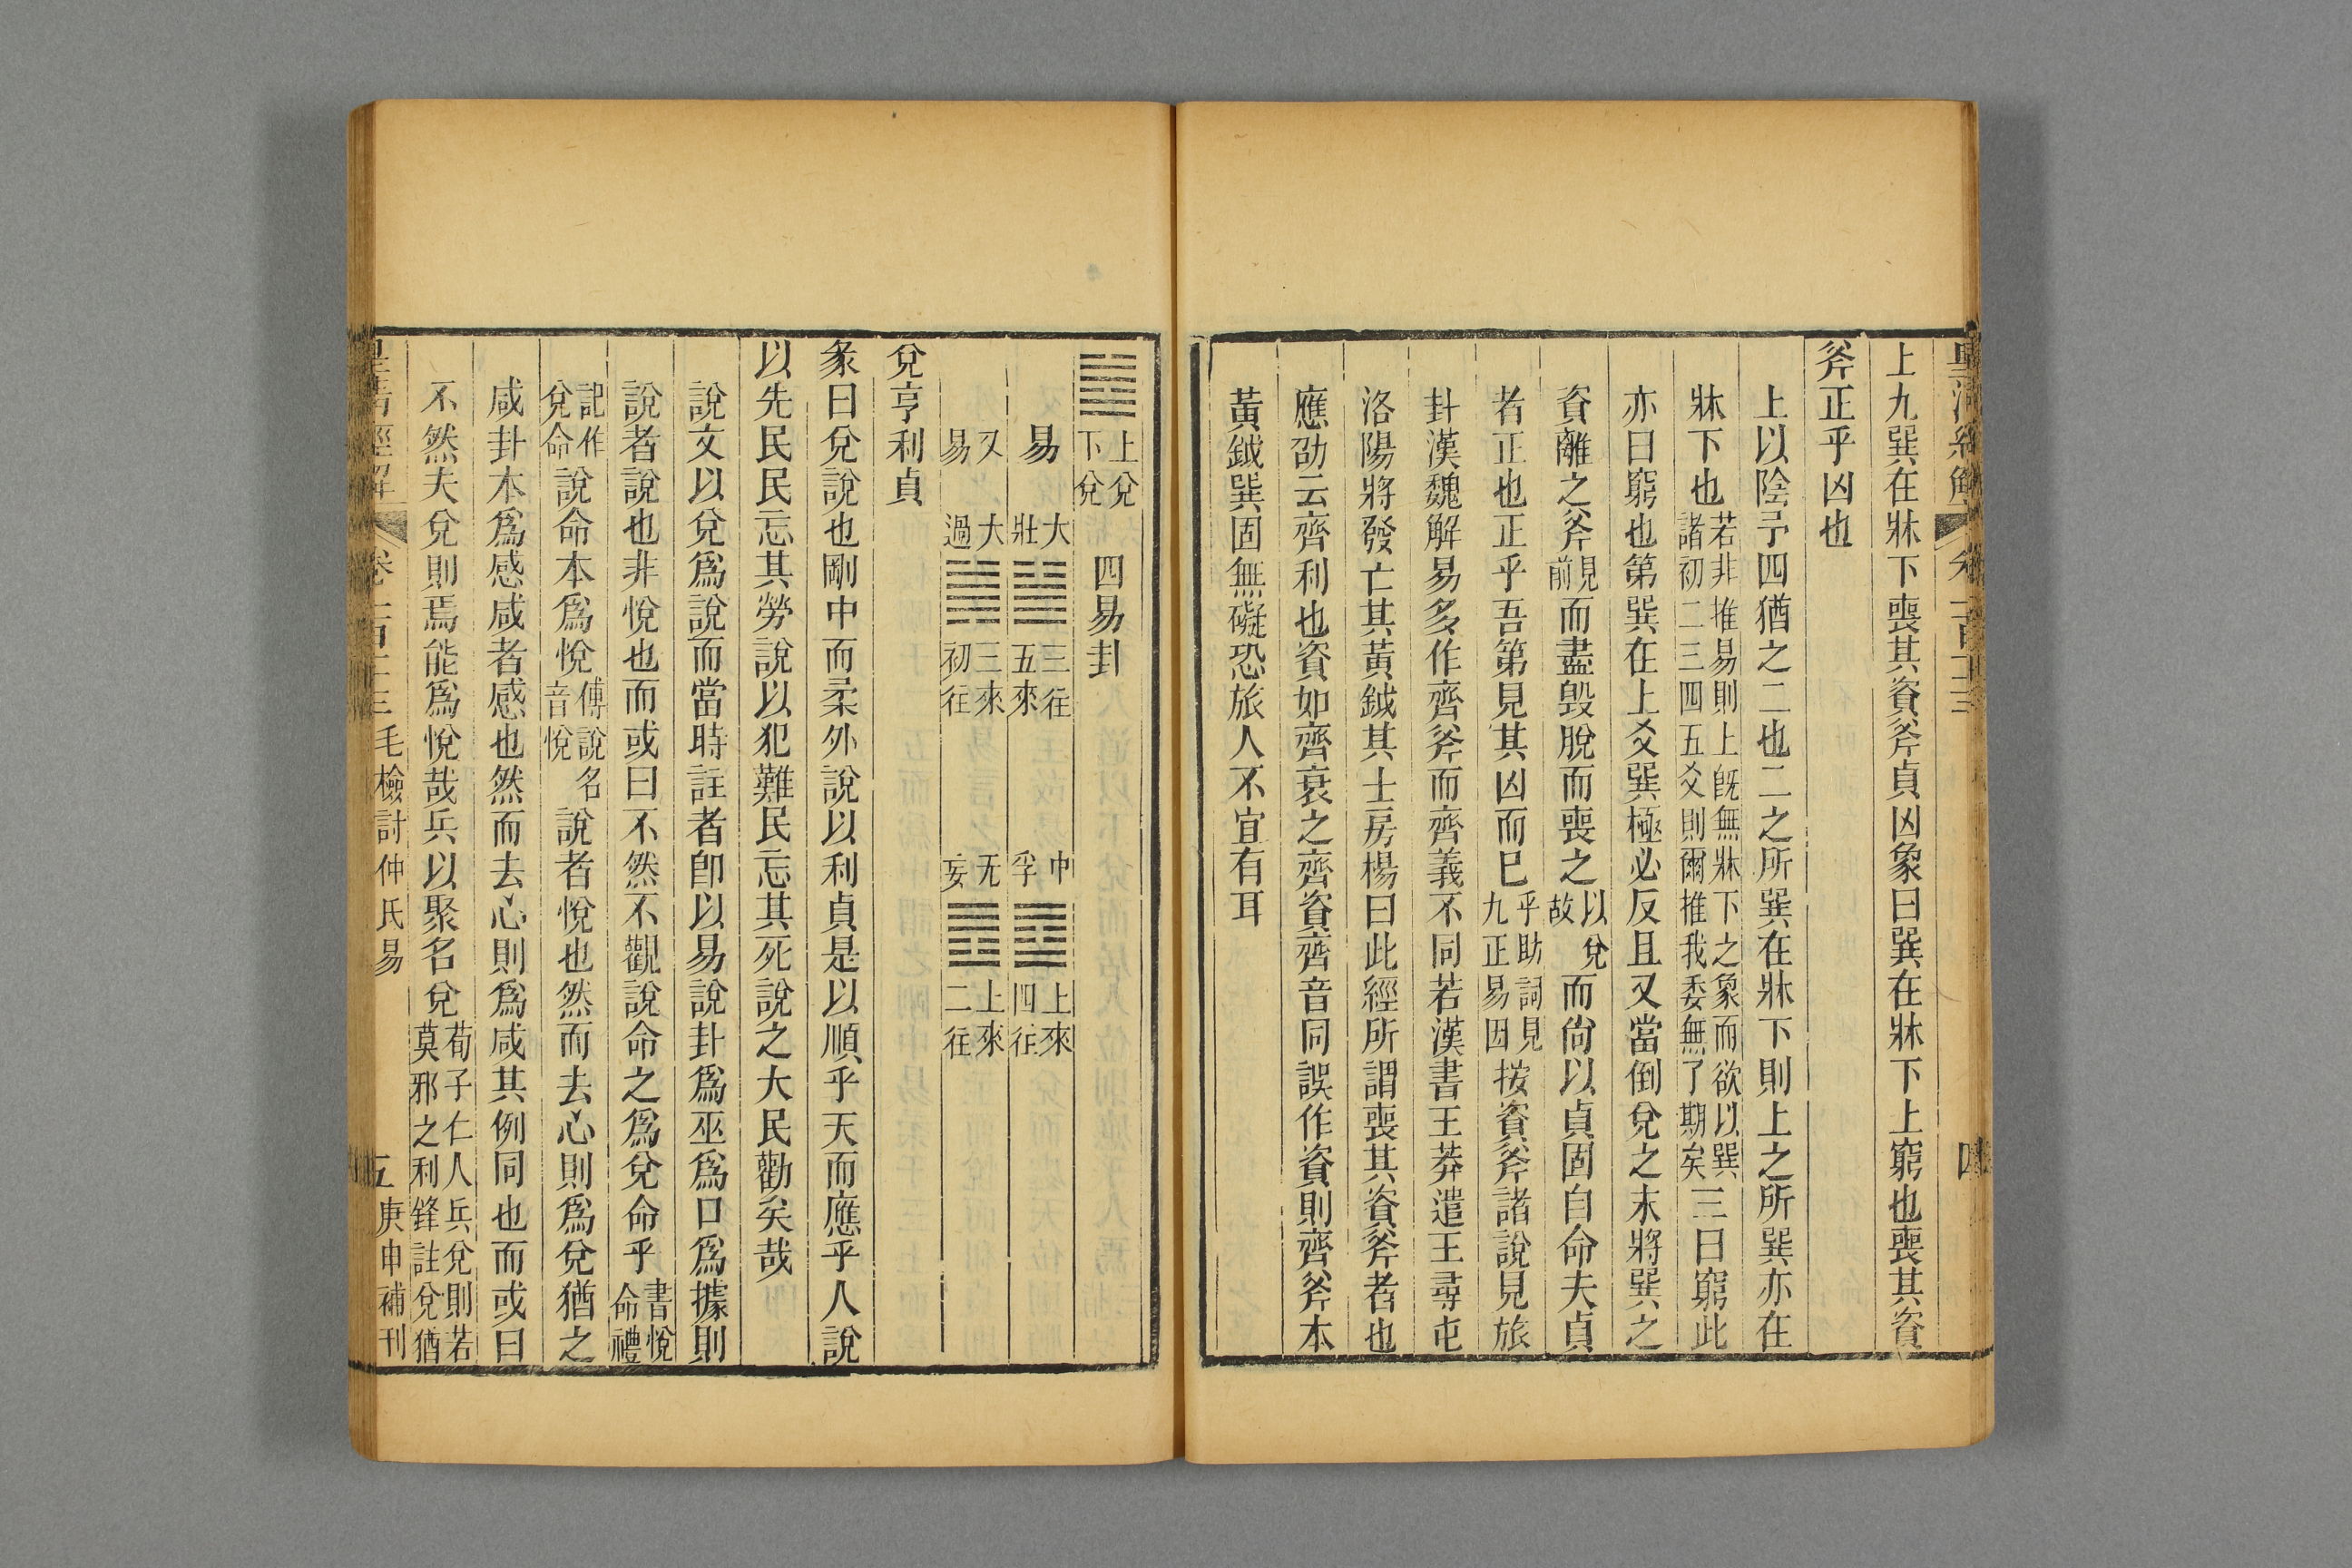 皇清經解 卷一百十三 四
上九巽在牀下喪其資斧貞凶象曰巽在牀下上窮也喪其資
斧正乎凶也
上以陰予四猶之二也二之所巽在牀下則上之所巽亦在
牀下也若非推易則上旣無牀下之象而欲以巽諸初二三四五爻則爾推我委無了期矣三曰窮此
亦曰窮也第巽在上爻巽極必反且又當倒兌之末將巽之
資離之斧見前而盡毀脫而喪之以兌故而尙以貞固自命夫貞
者正也正乎吾第見其凶而已乎助詞見九正易因按資斧諸說見旅
卦漢魏解易多作齊斧而齊義不同若漢書王莽遣王尋屯
洛陽將發亡其黃鉞其士房楊曰此經所謂喪其資斧者也
應劭云齊利也資如齊衰之齊資齊音同誤作資則齊斧本
黃鉞巽固無礙恐旅人不宜有耳
䷹上兌下兌 四易卦
易 大壯䷡三往五來 中孚䷼上來四往
又易 大過䷛三來初往 无妄䷘上來二往
兌亨利貞
彖曰兌說也剛中而柔外說以利貞是以順乎天而應乎人說
以先民民忘其勞說以犯難民忘其死說之大民勸矣哉
說文以兌爲說而當時註者卽以易說卦爲巫爲口爲據則
說者說也非悅也而或曰不然不觀說命之爲兌命乎書悅命禮
記作兌命說命本爲悅傅說名音悅說者悅也然而去心則爲兌猶之
咸卦本爲感咸者感也然而去心則爲咸其例同也而或曰
不然夫兌則焉能爲悅哉兵以聚名兌荀子仁人兵兌則若莫邪之利鋒註兌猶
皇清經解 卷一百十三 毛檢討仲氏易 五 庚申補刊